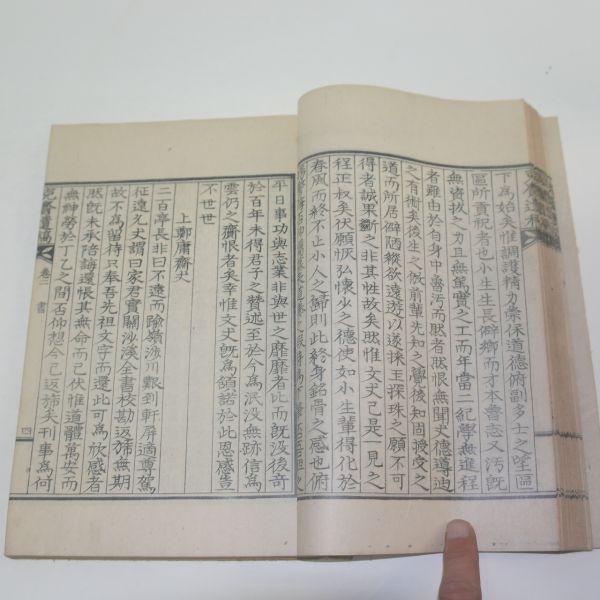 下為始矣惟調護精力彙保道德俯副多士之望區
區所貢祝者也小生生長僻鄉而才本魯志又汚旣
無資拔之力且無篤實之工而年當二紀學無進程
者雖由於自身中魯汚而然者然恨無聞丈德導迪
之有術矣後生之倣前輩先知之覺後知固授受之
道而所居僻陋縱欲遠遊以遂採玉探珠之願不可
得者誠果斷之非其性故矣然惟文丈已是一見之
程正叔矣伏願恢弘懷少之德使如小生輩得化於
春風而終不止小人之歸則此終身銘骨之感也俯
平日事功與志業非與世之靡靡者比而旣沒後奇
於百年未得君子之贊述至於今為泯沒無跡信為
雲仍之齎恨者矣幸惟文丈旣為頷諾於此恩感豈
不世世
上鄭庸齋丈
二百亭長非曰不遠而踰嶺涉川艱到軒屏適尊駕
征遠允丈謂曰家君實關沙溪全書校勘返旆無期
故不為留待只奉吾先祖文字而還此可為欣感者
然旣未承陪誨還悵其無命而已伏惟道體萬安而
無紳勞於丁乙之間否仰想今已返旆矣刊事為何
遺稿
卷二
書
四